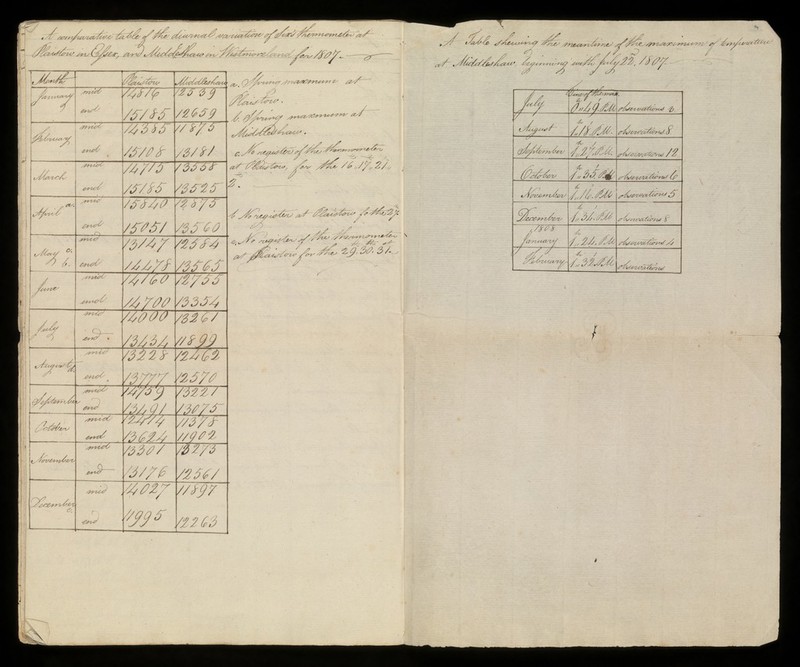 A comparative table of the diurnal variation of Six's thermometer at
Plaistow in Essex, and Middleshaw in Westmoreland for 1807.
Month Plaistow Middleshaw
January mid 14816 12539
a end 15185 12659
February mid 14585 11875
end 15108 13181
March mid 14715 13558
end 15185 13525
April a mid 15840 12875
end 15051 13560
May a mid 13147 12584
b. end 14478 13565
June mid 14160 12755
end 14700 13354
July mid 14000 13261
end 13434 11899
August mid 13228 12462
end 13777 12570
September mid 14759 13221
end 13491 13075
October mid 12414 11378
end 13624 11902
November mid 13301 13273
end 13176 12561
December mid 14027 11897
end 11995 12263
a. Spring maximum at
Plaistow.
b. Spring maximum at
Middleshaw.
a No register of the thermometer
at Plaistow, for the 16.. 17.. 21..
2..
b No register at Plaistow for the 27
c. No register of the thermometer
at Plaistow for the 29. 30. 31..
A Table shewing the meantime of the maximum of temperature
at Middleshaw beginning with July 22, 1807
July 0..49 P.M. observations 2
August 1..18 P.M. observations 8
September 1..27 P.M. observations 12
October 1..35 P.M. observations 6
November 1..16 P.M. observations 5
December 1..31 P.M. observations 8
1808
January 1..24 P.M. observations 4
February 1..32 P.M. observations